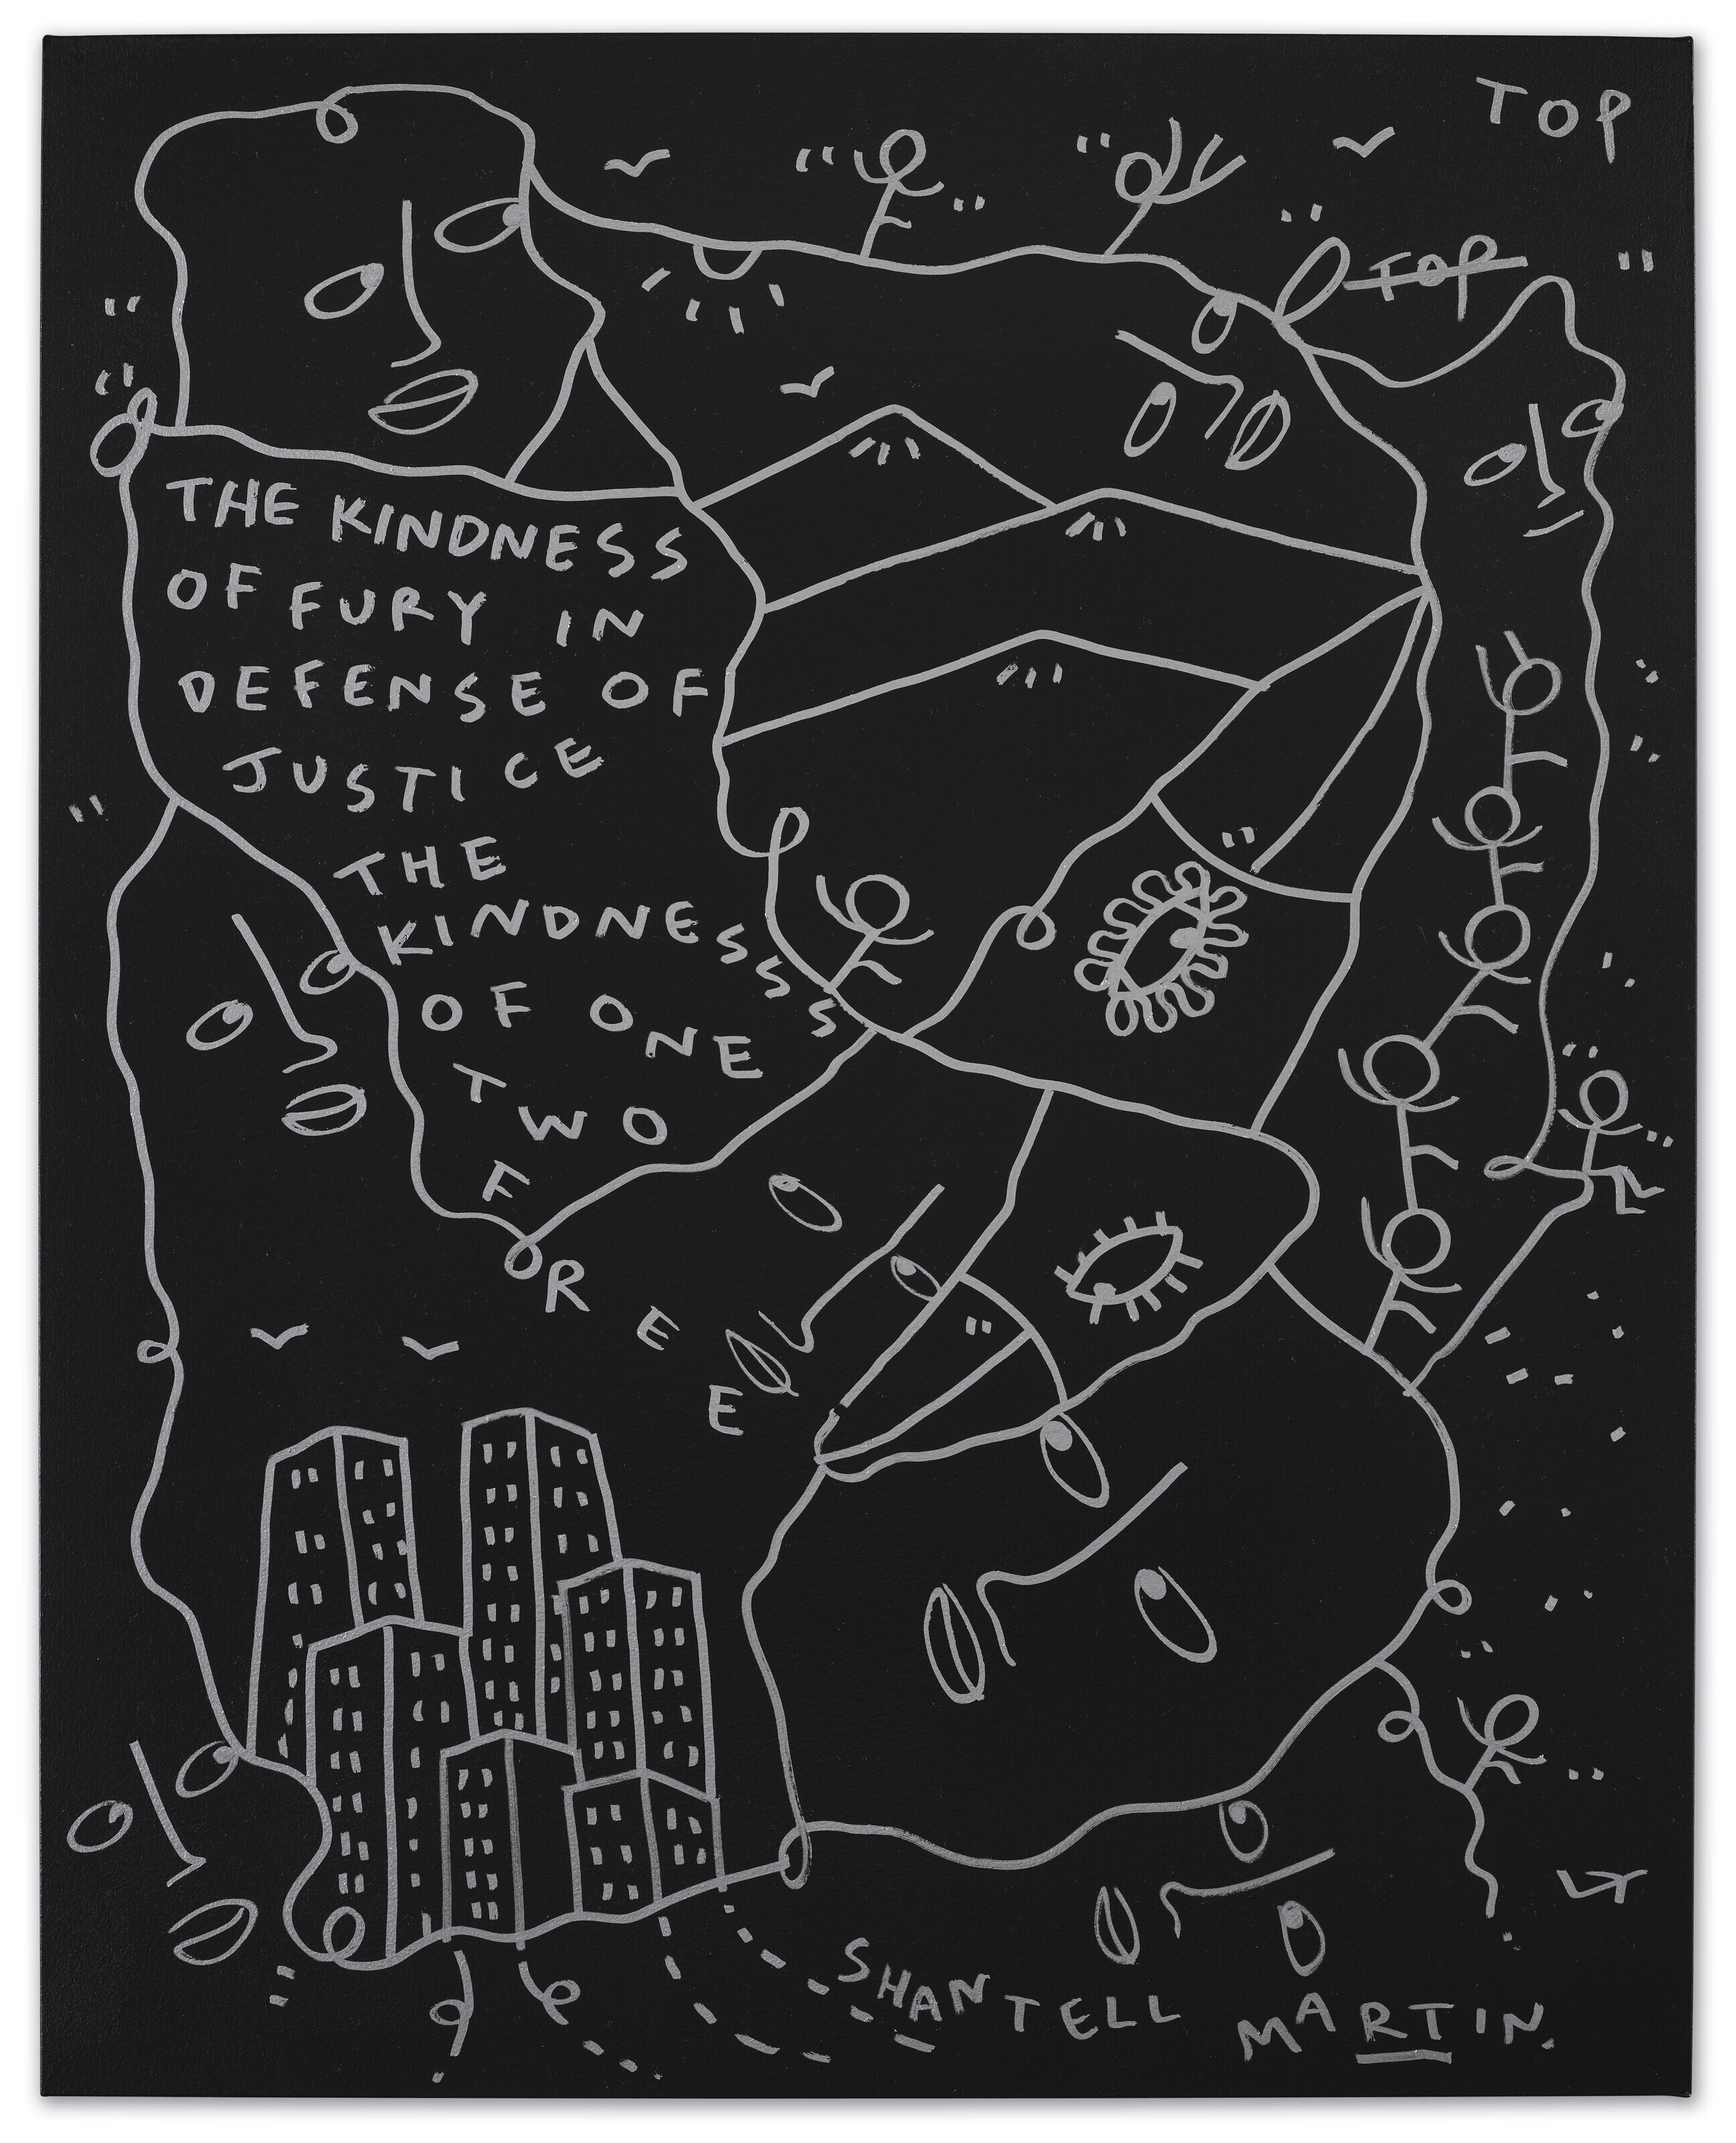 TOP
TOP
THE KINDNESS
OF FURY IN
DEFENSE OF
JUSTICE
THE
KINDNESSSS
OF ONE
TWO
FOREE
SHANTELL MARTIN.